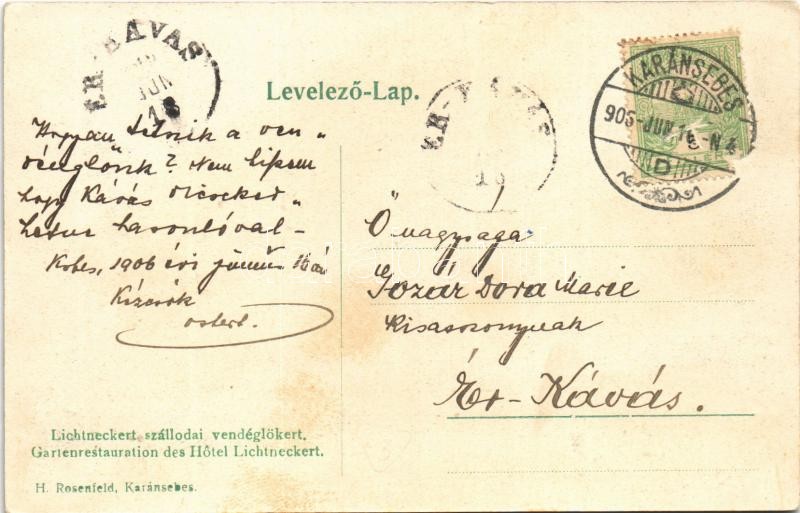 ER-KÁVÁS
JUN
18
Levelező-Lap.
ER-KÁVÁS
18
KARÁNSEBES
905-JUN 16-N4
D
Hogyan tetszik a ven„
déglőnk? Nem hiszem
hogy Kávás dicseked„
hetne hasonlóval –
Kbes, 1906 évi június 16án
Kézcsók
Ő nagysága
Gozár Dora Marie
kisasszonynak
Ér-Kávás.
Lichtneckert szállodai vendéglőkert.
Gartenrestauration des Hôtel Lichtneckert.
H. Rosenfeld, Karánsebes.